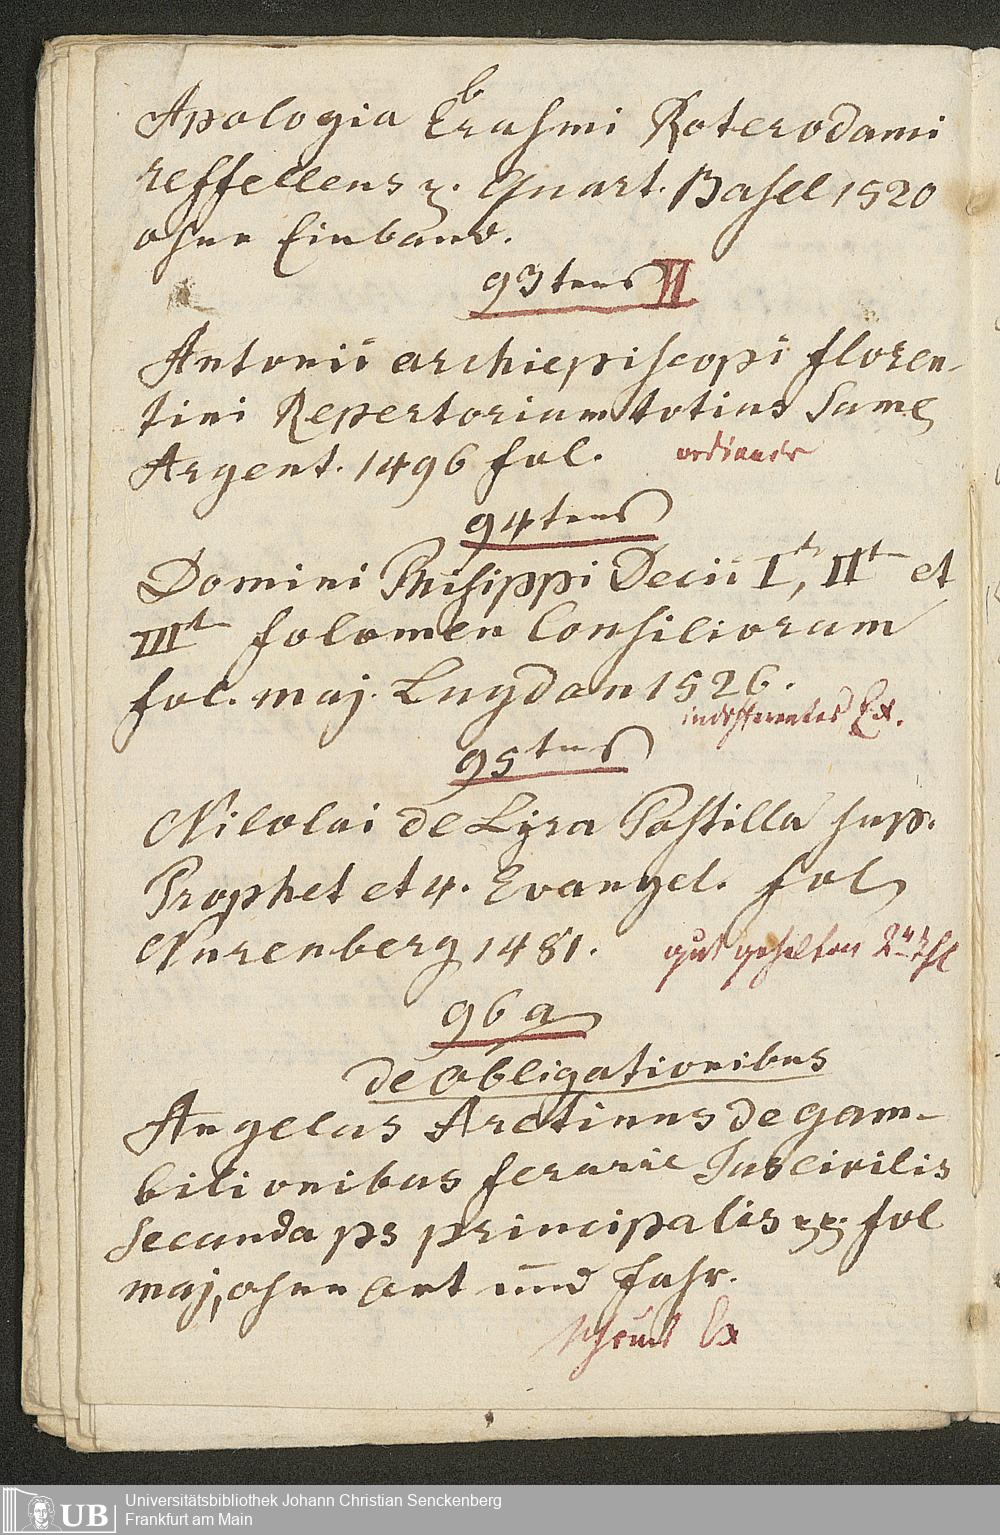 b
Apologia Erasmi Roterodami
reffellens z. Quart. Basel 1520
ohne Einband.
93tens II
Antonii archiepiscopi floren-
tini Repertorium totius Sume
Argent. 1496 fol. ordinair
94tens
Domini Philippi Decii I t, II t et
III t folomen Consiliorum
fol. maj. Lugdun 1526.
indifferentes Ex.
95tens
Nicolai de Lyra Postilla sup.
Prophet et 4. Evangel. fol
Nurenberg 1481. gut gehalten
96 a
de obligationibus
Angelus Aretinus de gam-
bilionibus Jus civilis
secunda ps principalis fol
maj, ohne Ort und Jahr.
Ex
Universitätsbibliothek Johann Christian Senckenberg
Frankfurt am Main
UB